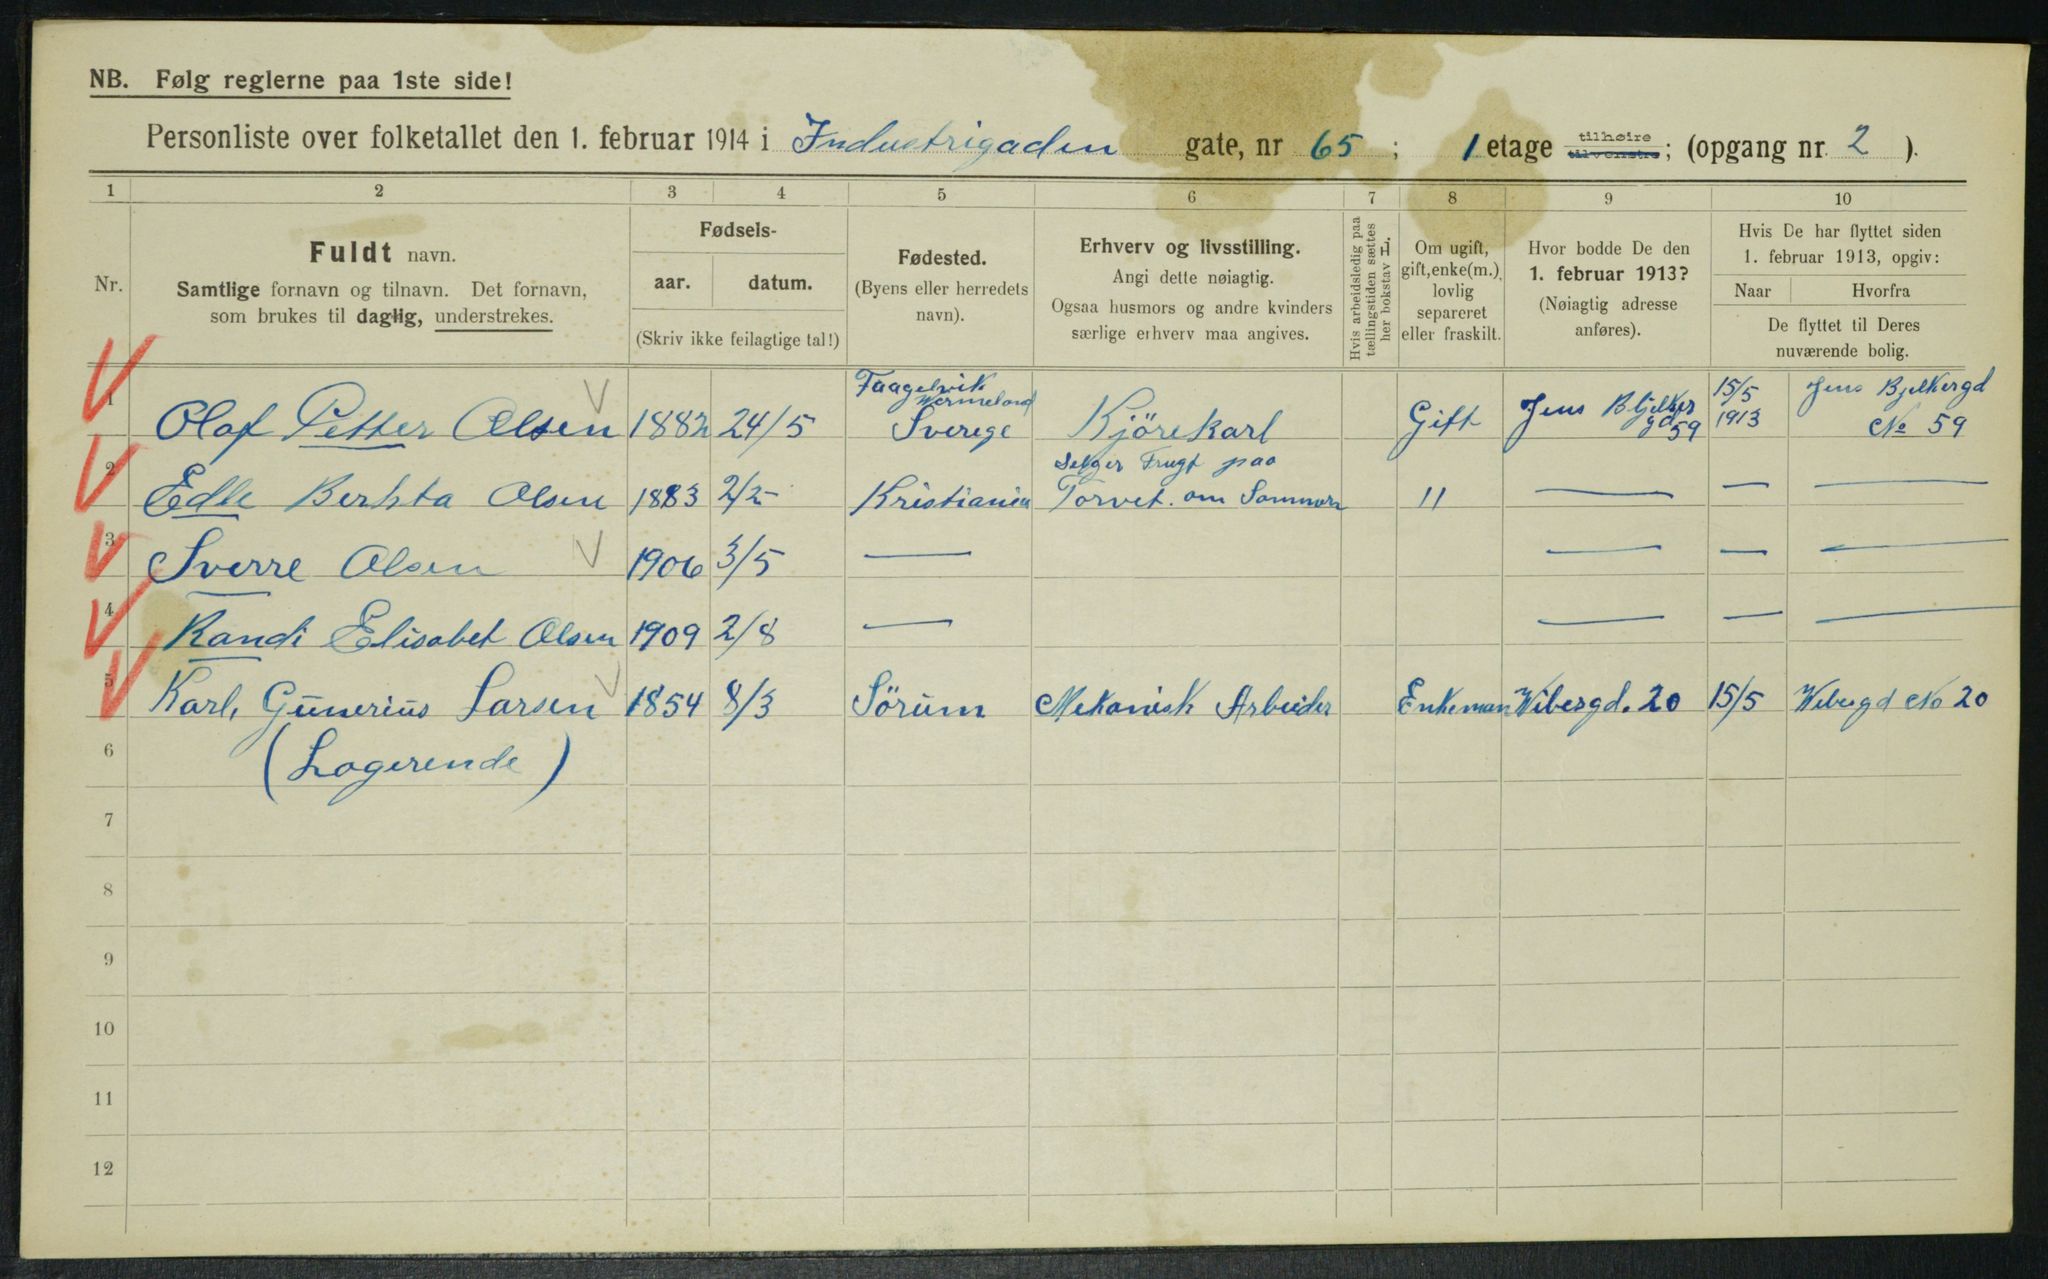 NB. Følg reglerne paa 1ste side!
Personliste over folketallet den 1. februar 1914 i Industrigaden gate, nr 65 ; 1 etage tilhøire tilvenstre; (opgang nr. 2 ).
1 2 3 4 5 6 7 8 9 10
Nr.
Fuldt navn.
Samtlige fornavn og tilnavn. Det fornavn,
som brukes til daglig, understrekes.
Fødsels-
aar. datum.
(Skriv ikke feilagtige tal!)
Fødested.
(Byens eller herredets
navn).
Erhverv og livsstilling.
Angi dette nøiagtig.
Ogsaa husmors og andre kvinders
særlige erhverv maa angives.
Hvis arbeidsledig paa
tællingstiden sættes
her bokstav L.
Om ugift,
gift, enke(m.),
lovlig
separeret
eller fraskilt.
Hvor bodde De den
1. februar 1913?
(Nøiagtig adresse
anføres).
Hvis De har flyttet siden
1. februar 1913, opgiv:
Naar Hvorfra
De flyttet til Deres
nuværende bolig.
1 Olaf Petter Olsen 1882 24/5 Faagelvik Wermeland Sverige Kjörekarl Gift Jens Bljelker gd 59 15/5 1913 Jens Bjelkergd No 59
2 Edle Berhta Olsen 1883 2/2 Kristiania Selger Frugt paa Torvet. om Sommern " — — —
3 Sverre Olsen 1906 3/5 — — — —
4 Randi Elisabet Olsen 1909 2/8 — — — —
5 Karl, Gunerius Larsen 1854 8/3 Sörum Mekanisk Arbeider Enkeman Wibergd. 20 15/5 Wibergd No 20
6 (Logerende)
7
8
9
10
11
12